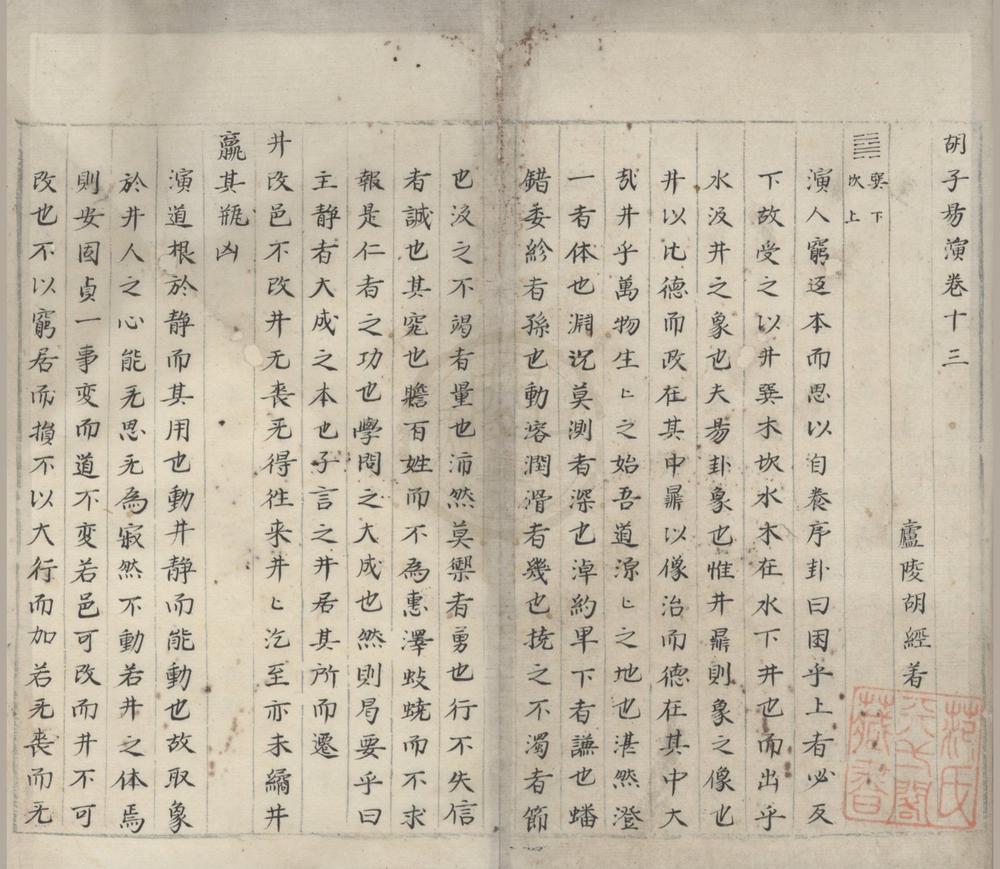 胡子易演卷十三
廬陵胡經着
䷯巽下坎上
演人窮迊本而思以自養序卦曰困乎上者必反
下故受之以井巽木坎水木在水下井也而出乎
水汲井之象也夫易卦象也惟井鼎則象之像也
井以比德而政在其中鼎以像治而德在其中大
㦲井乎萬物生〻之始吾道源〻之地也湛然澄
一者体也淵沉莫測者深也淖約卑下者謙也蟠
錯委紾者孫也動溶潤滑者幾也撓之不濁者節
也汲之不竭者量也沛然莫禦者勇也行不失信
者誠也其究也贍百姓而不為惠澤蚑蟯而不求
報是仁者之功也學問之大成也然則曷要乎曰
主静者大成之本也子言之井居其所而遷
井改邑不改井无喪无得徃来井〻汔至亦未繘井
羸其瓶凶
演道根於静而其用也動井静而能動也故取象
於井人之心能无思无為寂然不動若井之体焉
則安固貞一事変而道不変若邑可改而井不可
改也不以窮居而損不以大行而加若无喪而无
范氏天一閣藏書